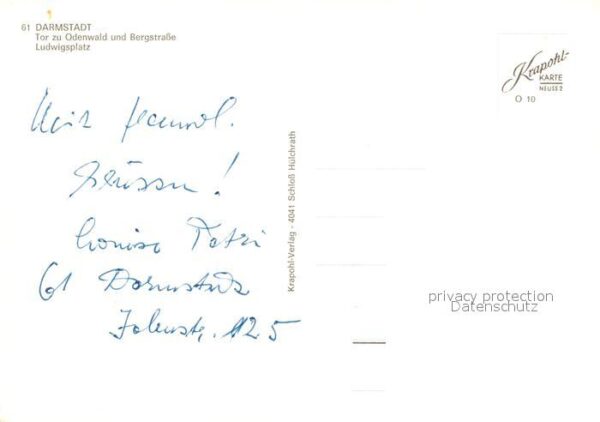 61 DARMSTADT
Tor zu Odenwald und Bergstraße
Ludwigsplatz
Krapohl-
KARTE
NEUSS 2
O 10
Mit freundl.
Grüssen!
Louise Petri
61 Darmstadt
125
Krapohl-Verlag - 4041 Schloß Hülchrath
privacy protection
Datenschutz